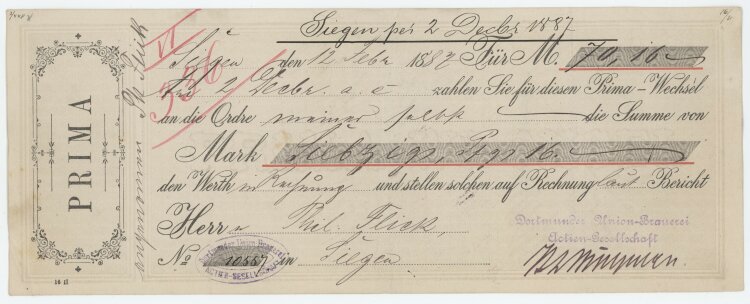 Siegen per 2 Decbr 1887
Siegen den 12 Sebr. 1887 Für M. 70,16
Per 2 Decbr. a. c. zahlen Sie für diesen Prima-Wechsel
an die Ordre meiner selbst die Summe von
Mark Siebzig, Pfgs 16.
den Werth in Rechnung und stellen solchen auf Rechnung laut Bericht
Herrn Phil. Flick,
No 10557 in Siegen
PRIMA
angenommen Ph Flick
Dortmunder Union-Brauerei
Actien-Gesellschaft
Dortmunder Union Brauerei
ACTIEN-GESELLSCHAFT
16 II